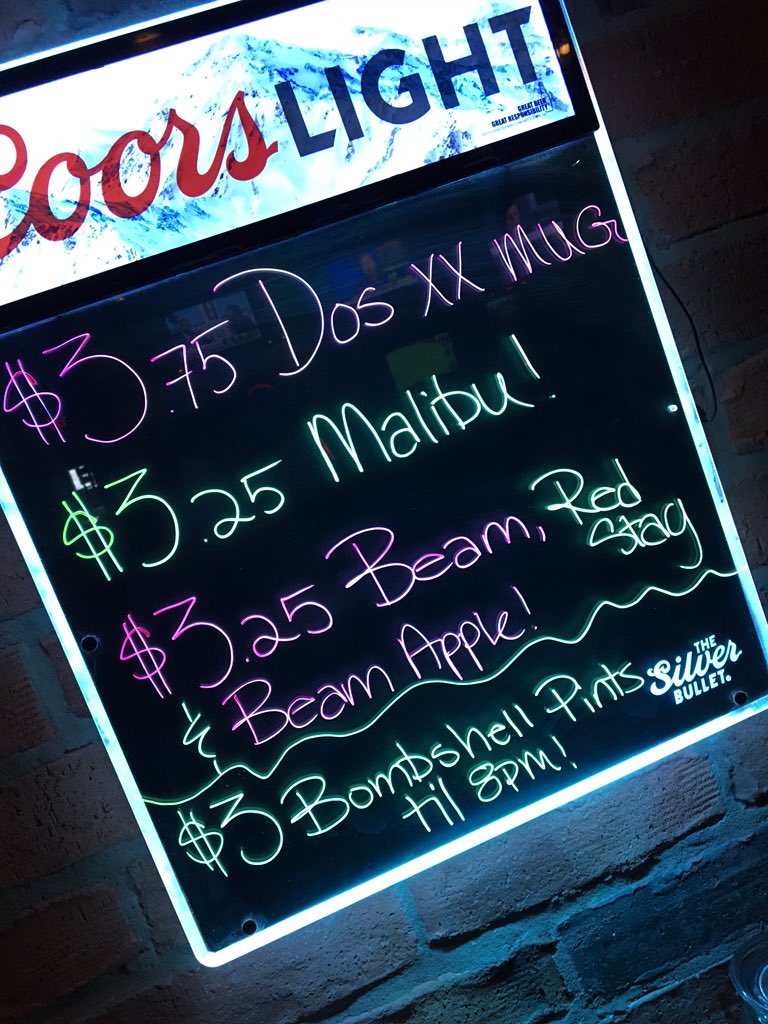 Coors LIGHT
GREAT BEER
GREAT RESPONSIBILITY
$3.75 Dos XX MUG
$3.25 Malibu!
$3.25 Beam, Red Stag
& Beam Apple!
$3 Bombshell Pints
til 8pm!
THE
Silver
BULLET.